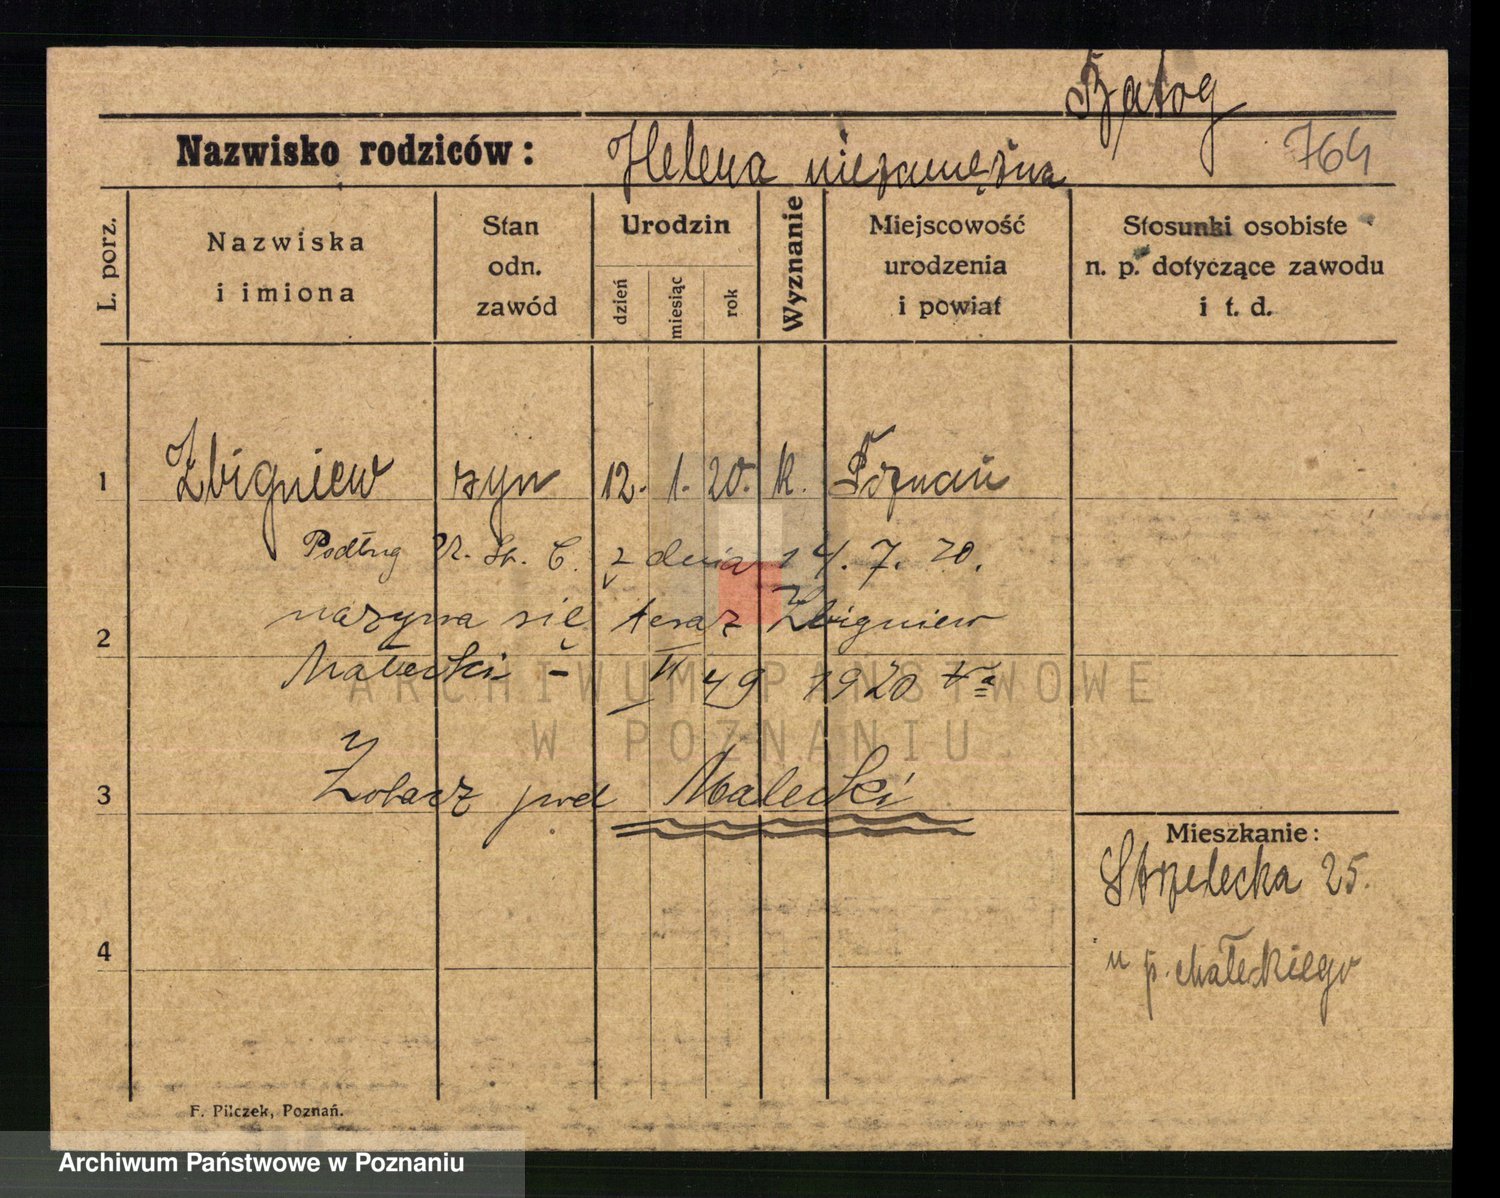 Batog
Nazwisko rodziców: Helena niezamężna 764
L. porz.
Nazwiska i imiona
Stan odn. zawód
Urodzin
dzień
miesiąc
rok
Wyznanie
Miejscowość urodzenia i powiat
Stosunki osobiste n. p. dotyczące zawodu i t. d.
1 Zbigniew syn 12. 1. 20. k. Poznań
Podług U. St. C. z dnia 14. 7. 20.
2 nazywa się teraz Zbigniew
Małecki - VI 49 1920
3 Zobacz pod Małecki
Mieszkanie:
Strzelecka 25.
u p. Małeckiego
4
F. Pilczek, Poznań.
ARCHIWUM PAŃSTWOWE
W POZNANIU
Archiwum Państwowe w Poznaniu